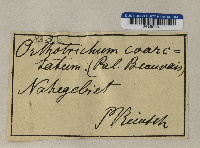 Orthotrichum coarc-
tatum. (Pal. Beauvais)
Nahegebiet
PReinsch